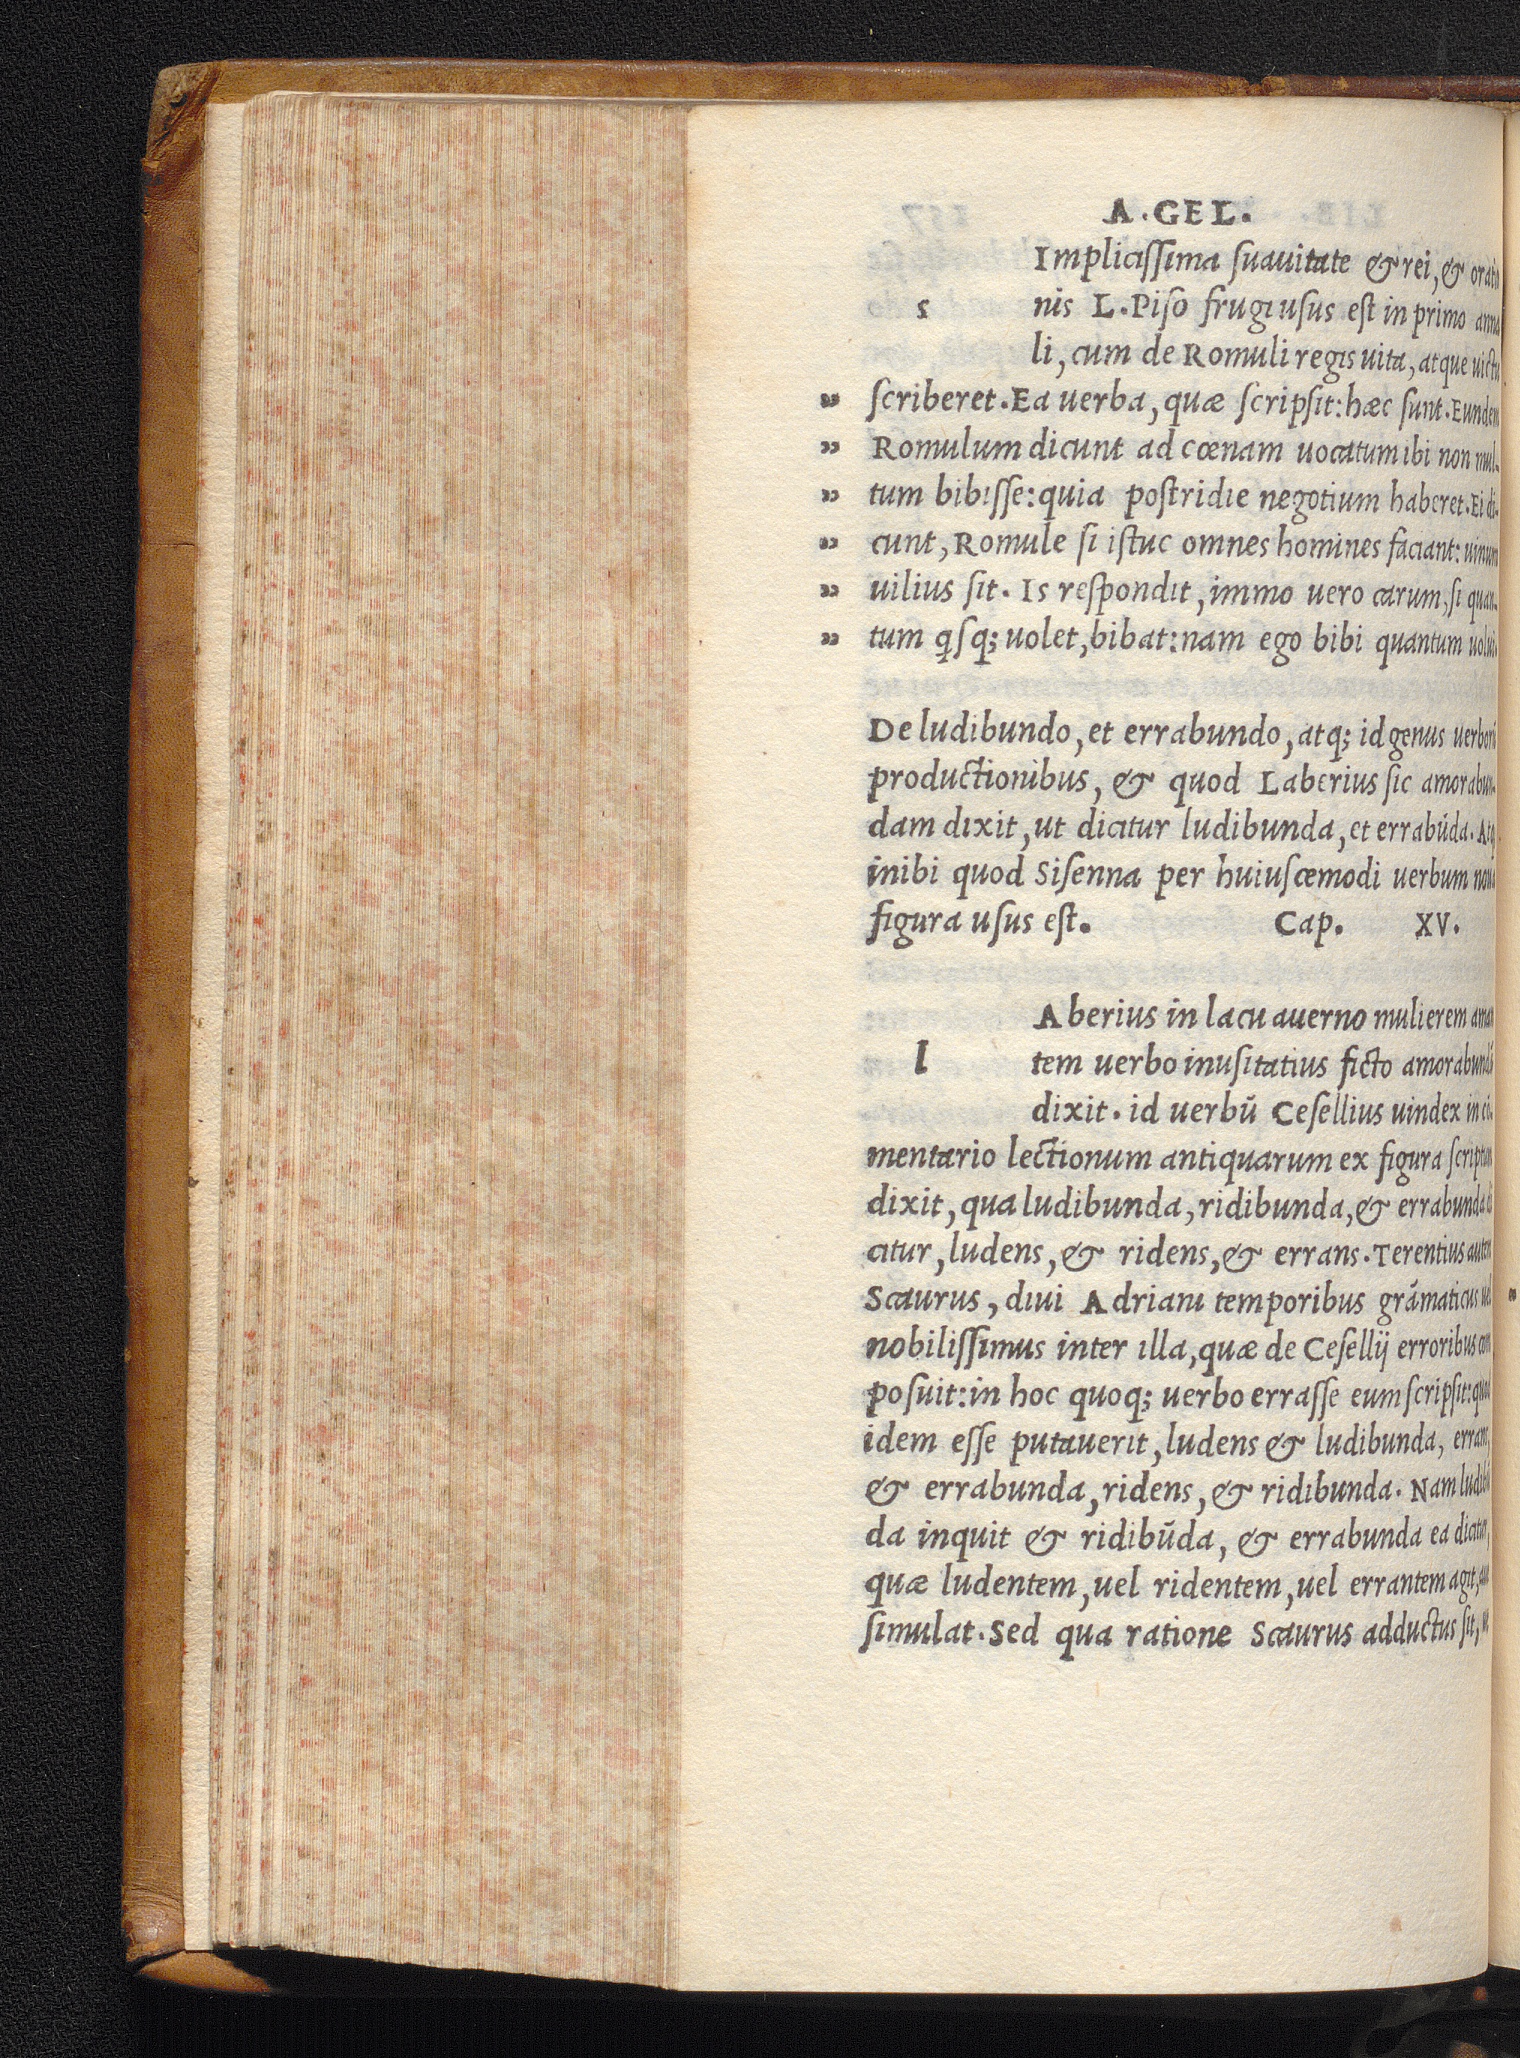 A.GEL.
Implicissima suauitate & rei, & oratio
s nis L. Piso frugi usus est in primo anna
li, cum de Romuli regis uita, atque uictu
„ scriberet. Ea uerba, quæ scripsit: hæc sunt. Eundem
„ Romulum dicunt ad cœnam uocatum ibi non mul-
„ tum bibisse: quia postridie negotium haberet. Ei di-
„ cunt, Romule si istuc omnes homines faciant: uinum
„ uilius sit. Is respondit, immo uero carum, si quan-
„ tum qsq; uolet, bibat: nam ego bibi quantum uolui.
De ludibundo, et errabundo, atq; id genus uerborū
productionibus, & quod Laberius sic amorabun-
dam dixit, ut dicitur ludibunda, et errabūda. Atq
inibi quod Sisenna per huiuscemodi uerbum noua
figura usus est. Cap. XV.
Aberius in lacu auerno mulierem aman
l tem uerbo inusitatius ficto amorabundā
dixit. id uerbū Cesellius uindex in cō-
mentario lectionum antiquarum ex figura scriptum
dixit, qua ludibunda, ridibunda, & errabunda di
citur, ludens, & ridens, & errans. Terentius autem
Scaurus, diui Adriani temporibus grāmaticus uel
nobilissimus inter illa, quæ de Cesellij erroribus com
posuit: in hoc quoq; uerbo errasse eum scripsit: quod
idem esse putauerit, ludens & ludibunda, errans,
& errabunda, ridens, & ridibunda. Nam ludibū
da inquit & ridibūda, & errabunda ea dicitur,
quæ ludentem, uel ridentem, uel errantem agit, aut
simulat. Sed qua ratione Scaurus adductus sit, ut